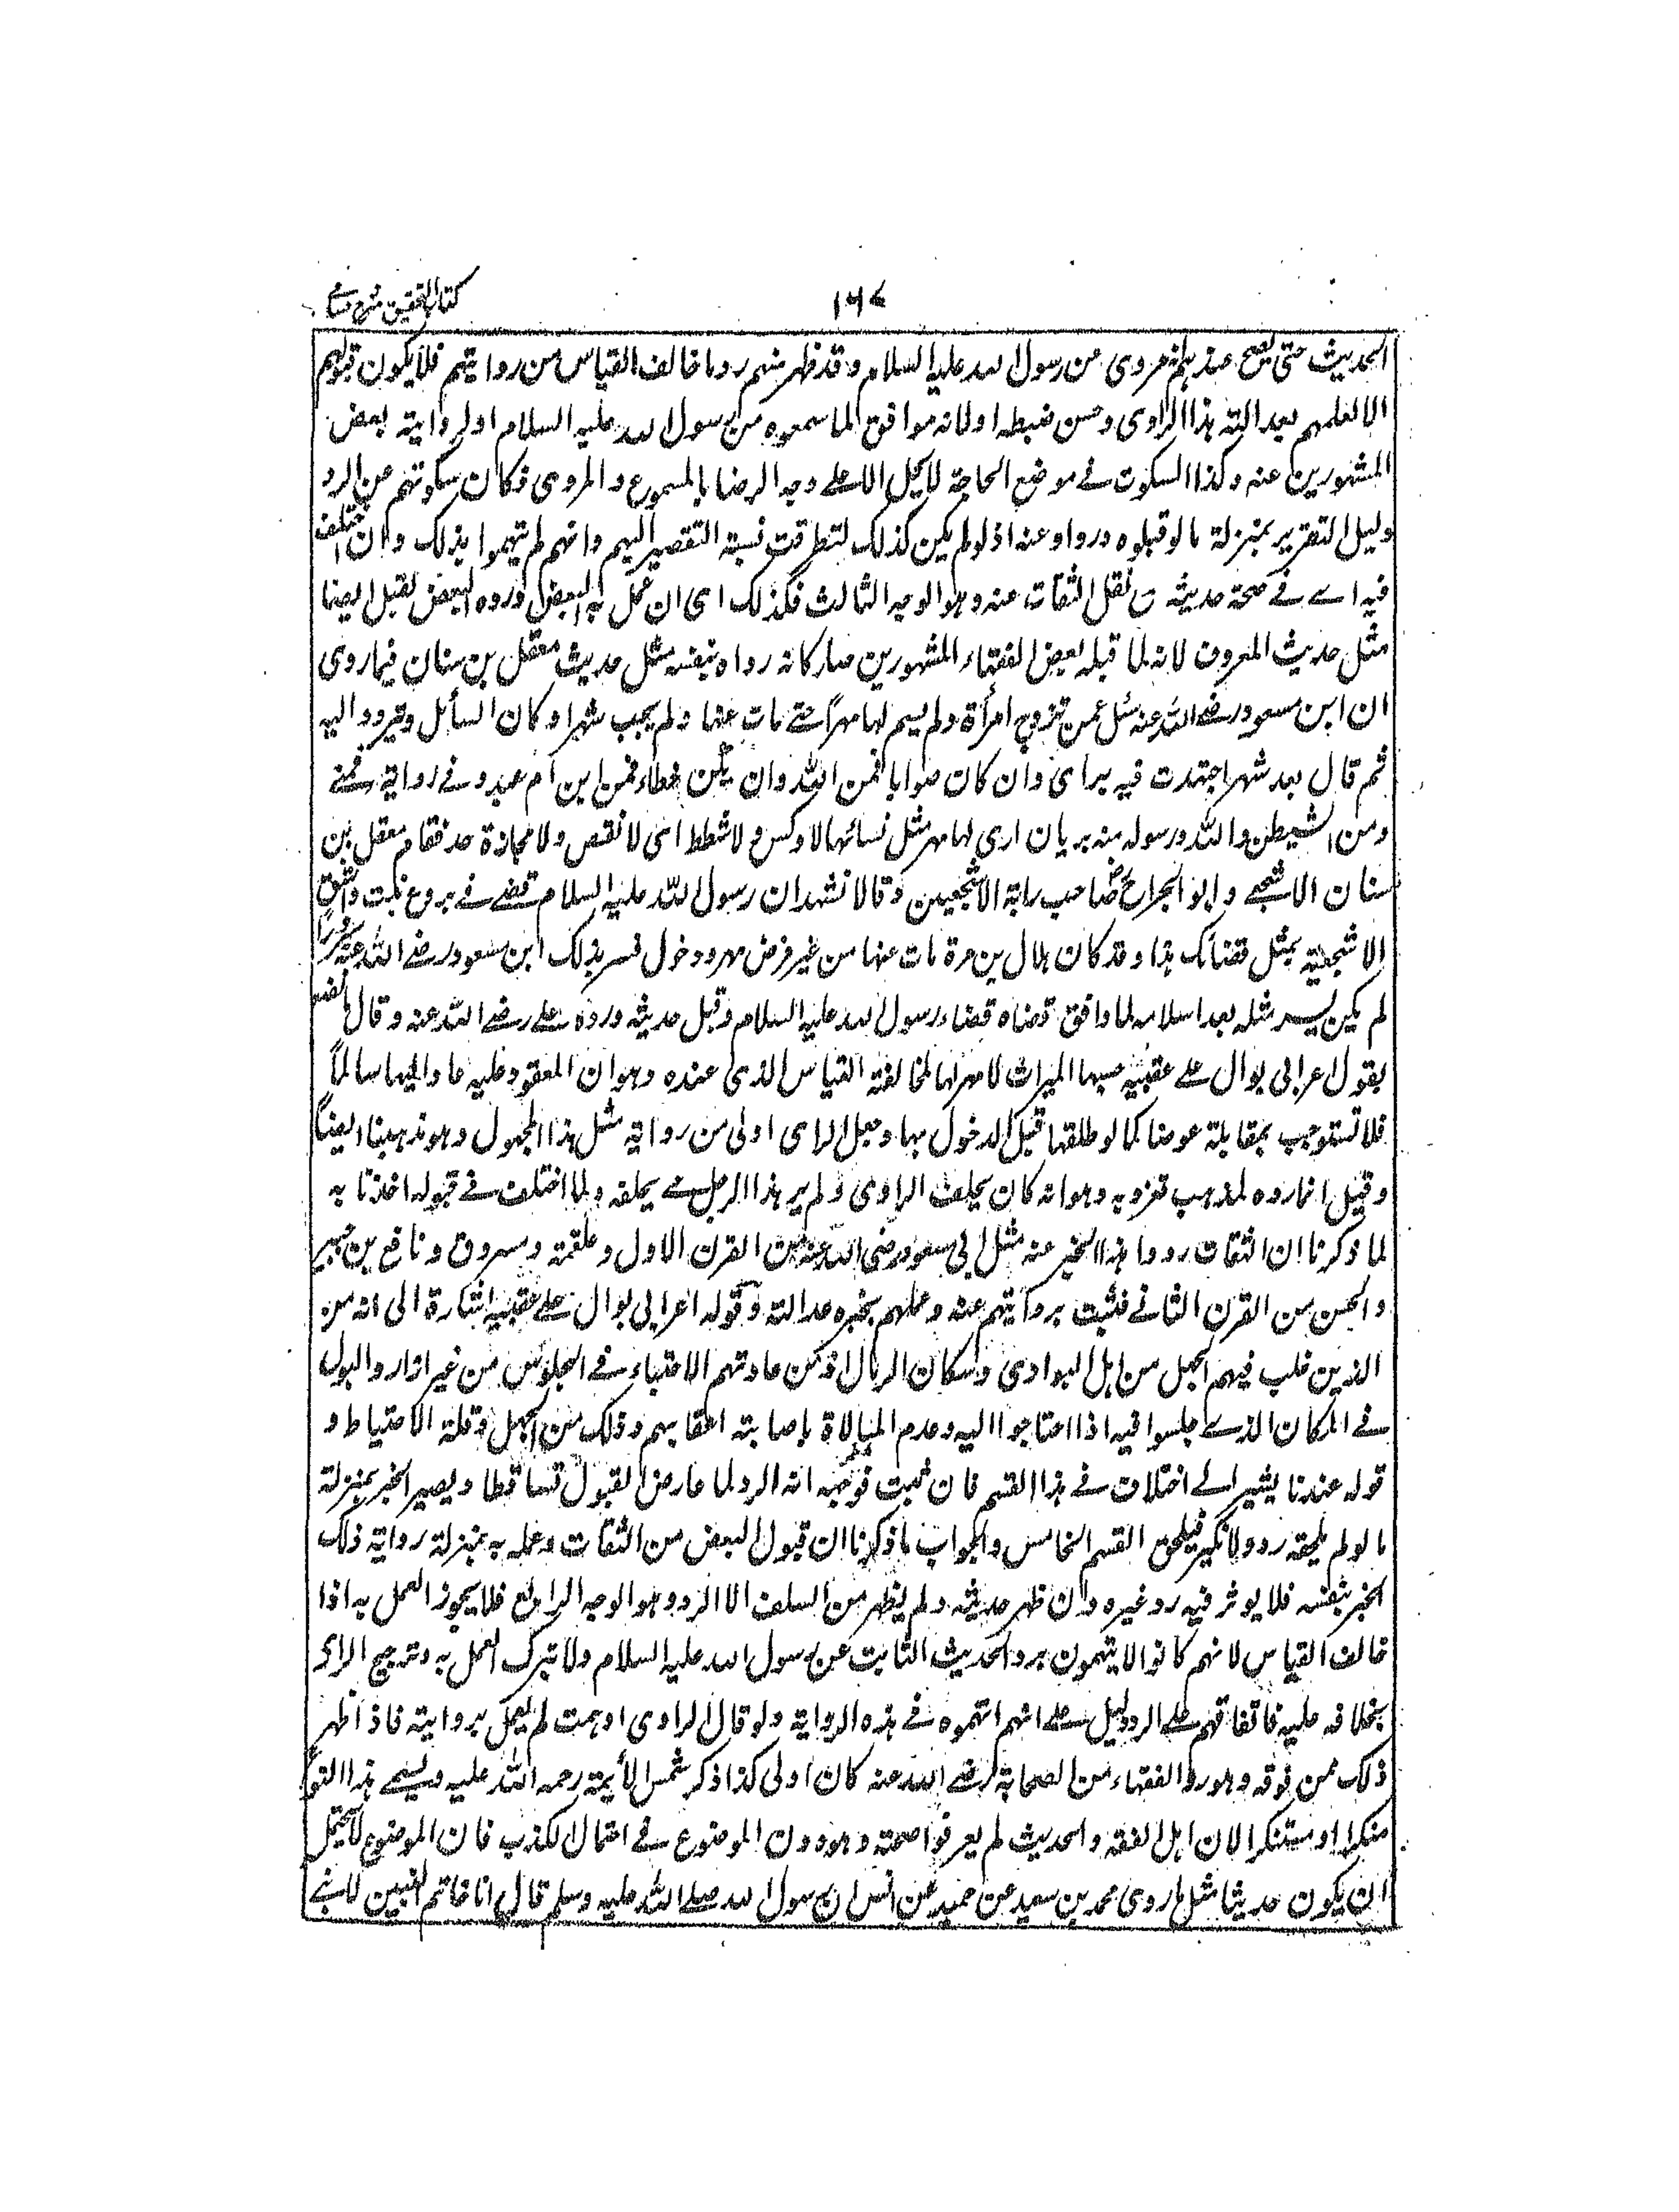 كتاب التحقيق شرح حسامي
١٦٧
الحديث حتى يصح عندهم انه مروى عن رسول الله عليه السلام وقد ظهر منهم رد ما خالف القياس من روايتهم فلا يكون قبولهم
الا لعلمهم بعدالته هذا الراوى وحسن ضبطه او لانه موافق لما سمعوه من رسول الله عليه السلام او لرواية بعض
المشهورين عنه وكذا السكوت فے موضع الحاجة لا يحل الا على وجه الرضا بالمسموع والمروى فكان سكوتهم عن الرد
دليل التقرير بمنزلة ما لو قبلوه ورووا عنه اذ لو لم يكن كذلك لتطرقت نسبة التقصير اليهم وانهم لم يتهموا بذلك وان اختلف
فيه اے فے صحة حديثه مع نقل الثقات عنه وهو الوجه الثالث فكذلك اى ان عمل به البعض ورده البعض يقبل ايضا
مثل حديث المعروف لانه لما قبله بعض الفقهاء المشهورين صار كانه رواه بنفسه مثل حديث معقل بن سنان فيما روى
ان ابن مسعود رضے الله عنه سئل عمن تزوج امرأة ولم يسم لها مهراً حتے مات عنها ولم يجب شهرا وكان السائل يتردد اليه
ثم قال بعد شهر اجتهدت فيه برايى وان كان صوابا فمن الله وان يكن خطاء فمن ابن ام عبد وفے رواية فمنے
ومن الشيطن والله ورسوله منه بريان ارى لها مهر مثل نسائها لا وكس ولا شطط اى لا نقص ولا مجاوزة حد فقام معقل بن
سنان الاشجعے وابو الجراح صاحب راية الاشجعيين وقالا نشهد ان رسول الله عليه السلام قضے فے بروع بنت واشق
الاشجعية بمثل قضائك هذا وقد كان هلال بن مرة مات عنها من غير فرض مهر ودخول فسر بذلك ابن مسعود رضے الله عنه سروراً
لم يكن يسر مثله بعد اسلامه لما وافق قضاه قضاء رسول الله عليه السلام وقبل حديثه ورده علے رضے الله عنه وقال ما نصنع
بقول اعرابى بوال علے عقبيه حسبها الميراث لا مهر لها لمخالفته القياس الذى عنده وهو ان المعقود عليه عاد اليها سالماً
فلا تستوجب بمقابلته عوضا كما لو طلقها قبل الدخول بها وجعل الراى اولى من رواية مثل هذا المجهول وهو مذهبنا ايضاً
وقيل انما رده لمذهب تفرد به وهو انه كان يحلف الراوى ولم ير هذا الرجل حتے يحلفه ولما اختلف فے قبوله اخذنا به
لما ذكرنا ان الثقات رووا هذا الخبر عنه مثل ابى مسعود رضى الله عنه من القرن الاول وعلقمة ومسروق ونافع بن جبير
والحسن من القرن الثانے فثبت بروايتهم عنه وعملهم بخبره عدالته وقوله اعرابى بوال علے عقبيه اشارة الى انه من
الذين غلب فيهم الجهل من اهل البوادى وسكان الرمال اذ من عادتهم الاحتباء فے الجلوس من غير ازار والبول
فے المكان الذے جلسوا فيه اذا احتاجوا اليه وعدم المبالاة باصابته اعقابهم وذلك من الجهل وقلة الاحتياط و
قوله عندنا يشير الے اختلاف فے هذا القسم فان ثبت فوجهه انه الرد لما عارض القبول تساقطا ويصير الخبر بمنزلة
ما لو لم يلحقه رد ولا نكير فيلحق القسم الخامس والجواب ما ذكرنا ان قبول البعض من الثقات وعمله به بمنزلة رواية ذلك
الخبر بنفسه فلا يوثر فيه رد غيره وان ظهر حديثه ولم يظهر من السلف الا الرد وهو الوجه الرابع فلا يجوز العمل به اذا
خالف القياس لانهم كانوا لا يتهمون برد الحديث الثابت عن رسول الله عليه السلام ولا بترك العمل به وترجيح الراى
بخلافه عليه فاتفاقهم علے الرد دليل علے انهم اتهموه فے هذه الرواية ولو قال الراوى اوهمت لم يعمل بروايته فاذا ظهر
ذلك ممن فوقه وهو رد الفقهاء من الصحابة رضے الله عنه كان اولى كذا ذكر شمس الأيمة رحمه الله عليه ويسمے هذا النوع
منكرا او مستنكرا لان اهل الفقه والحديث لم يعرفوا صحته وهو دون الموضوع فے احتمال الكذب فان الموضوع لا يحتمل
ان يكون حديثا مثل ما روى محمد بن سعيد عن حميد عن انس ان رسول الله صلے الله عليه وسلم قال انا خاتم النبيين لا نبے